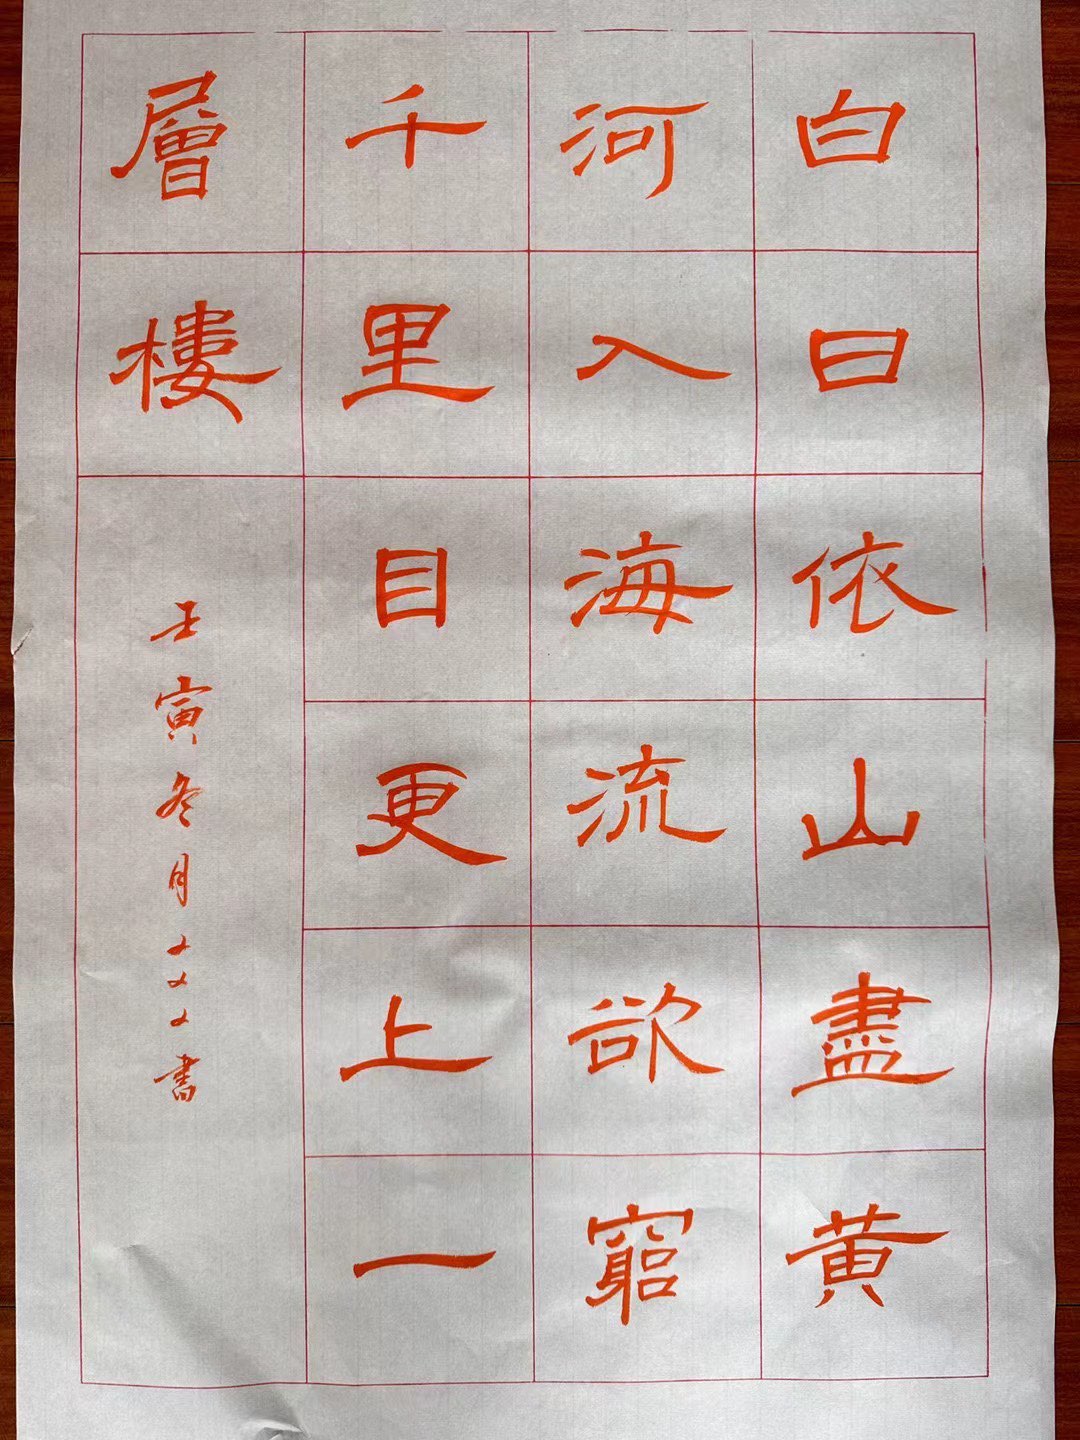 白日依山盡黄
河入海流欲窮
千里目更上一
層樓
壬寅冬月書